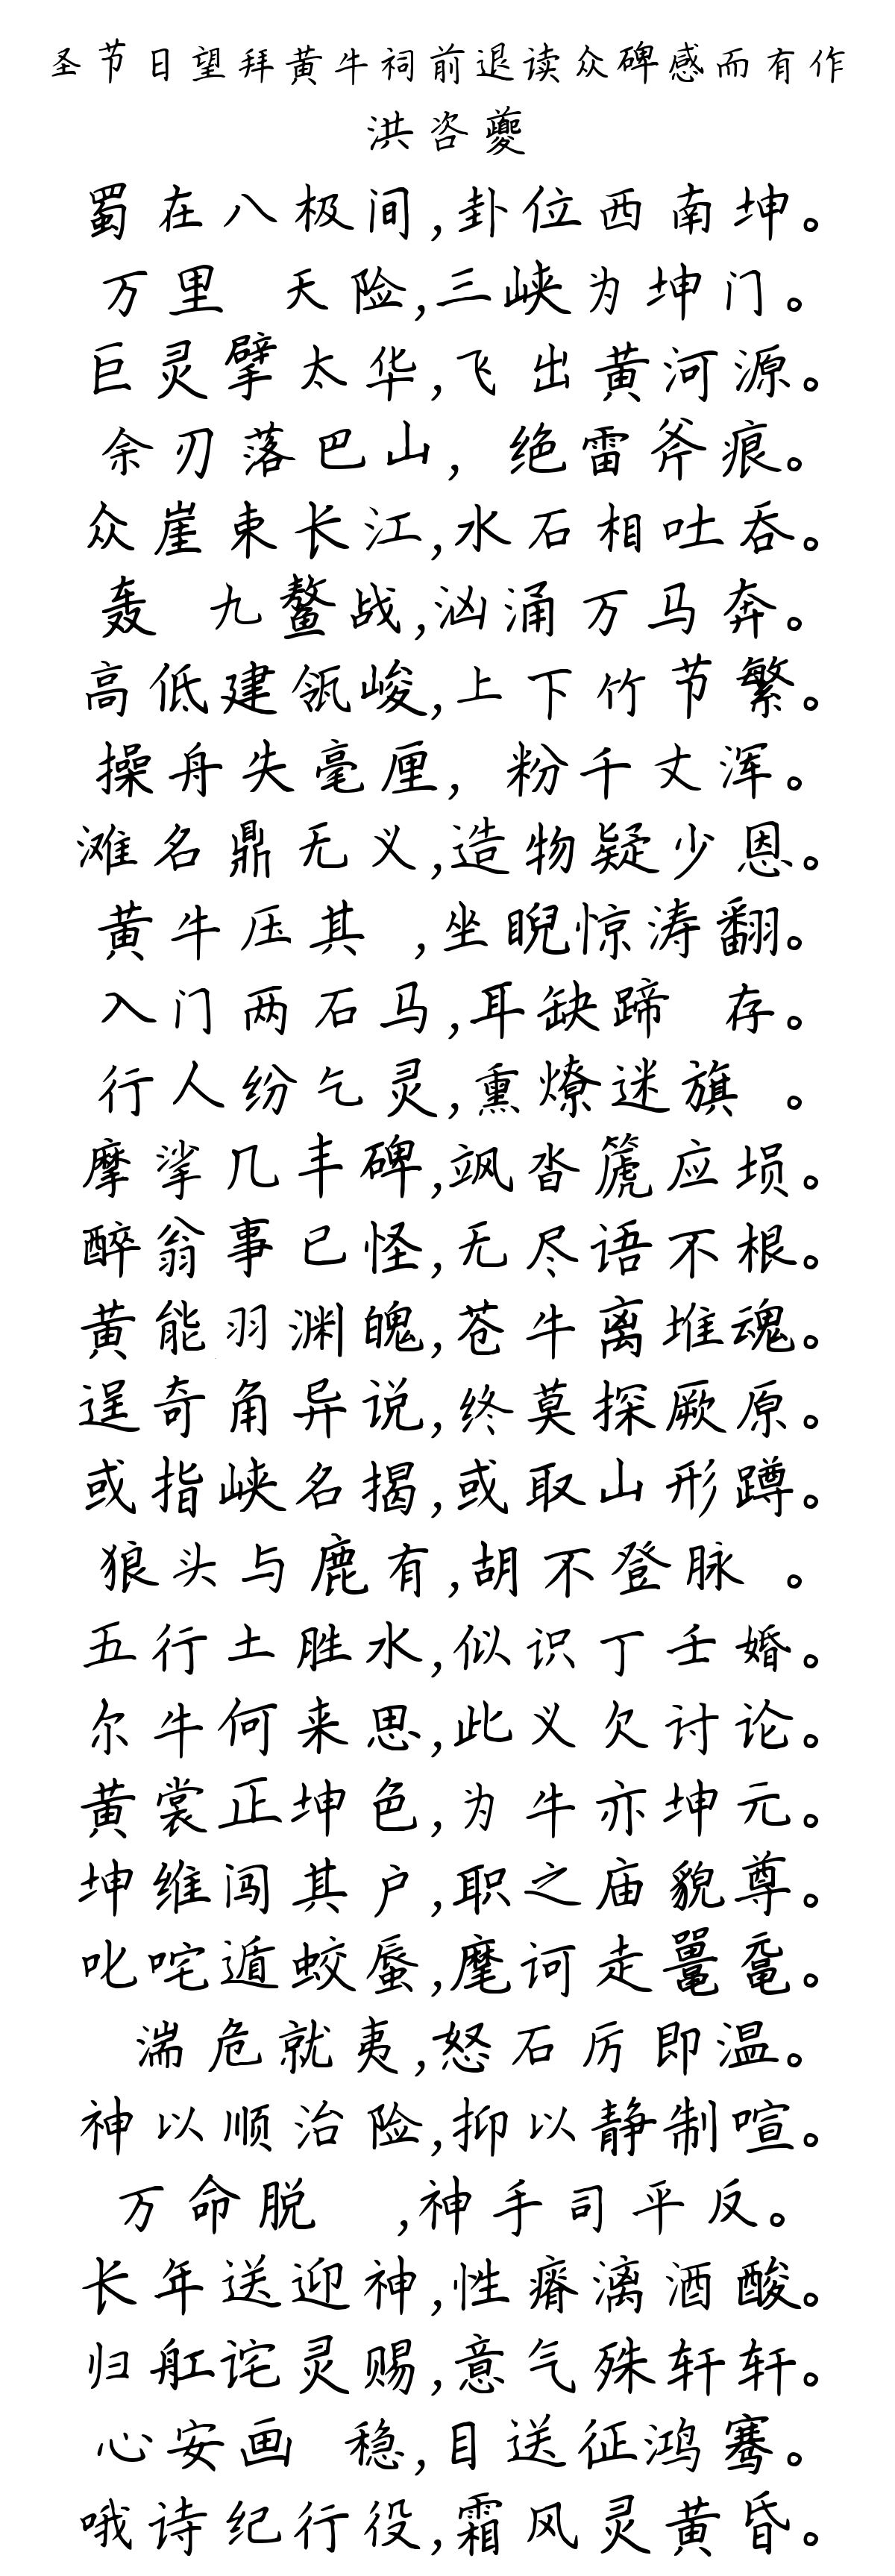 圣节日望拜黄牛祠前退读众碑感而有作
洪咨夔
蜀在八极间,卦位西南坤。
万里 天险,三峡为坤门。
巨灵擘太华,飞出黄河源。
余刃落巴山, 绝雷斧痕。
众崖束长江,水石相吐吞。
轰 九鳌战,汹涌万马奔。
高低建瓴峻,上下竹节繁。
操舟失毫厘, 粉千丈浑。
滩名鼎无义,造物疑少恩。
黄牛压其 ,坐睨惊涛翻。
入门两石马,耳缺蹄 存。
行人纷乞灵,熏燎迷旗 。
摩挲几丰碑,飒沓篪应埙。
醉翁事已怪,无尽语不根。
黄能羽渊魄,苍牛离堆魂。
逞奇角异说,终莫探厥原。
或指峡名揭,或取山形蹲。
狼头与鹿有,胡不登脉 。
五行土胜水,似识丁壬婚。
尔牛何来思,此义欠讨论。
黄裳正坤色,为牛亦坤元。
坤维闯其户,职之庙貌尊。
叱咤遁蛟蜃,麾诃走鼍鼋。
 湍危就夷,怒石厉即温。
神以顺治险,抑以静制喧。
万命脱 ,神手司平反。
长年送迎神,性瘠漓酒酸。
归舡诧灵赐,意气殊轩轩。
心安画 稳,目送征鸿骞。
哦诗纪行役,霜风灵黄昏。